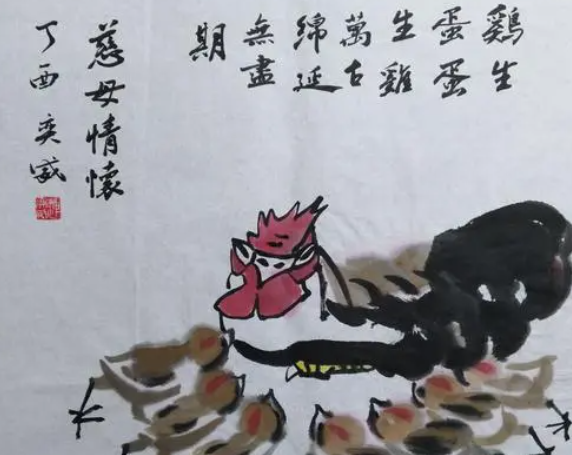 鷄生
蛋蛋
生雞
萬古
綿延
無盡
期
慈母情懷
丁酉 奕威